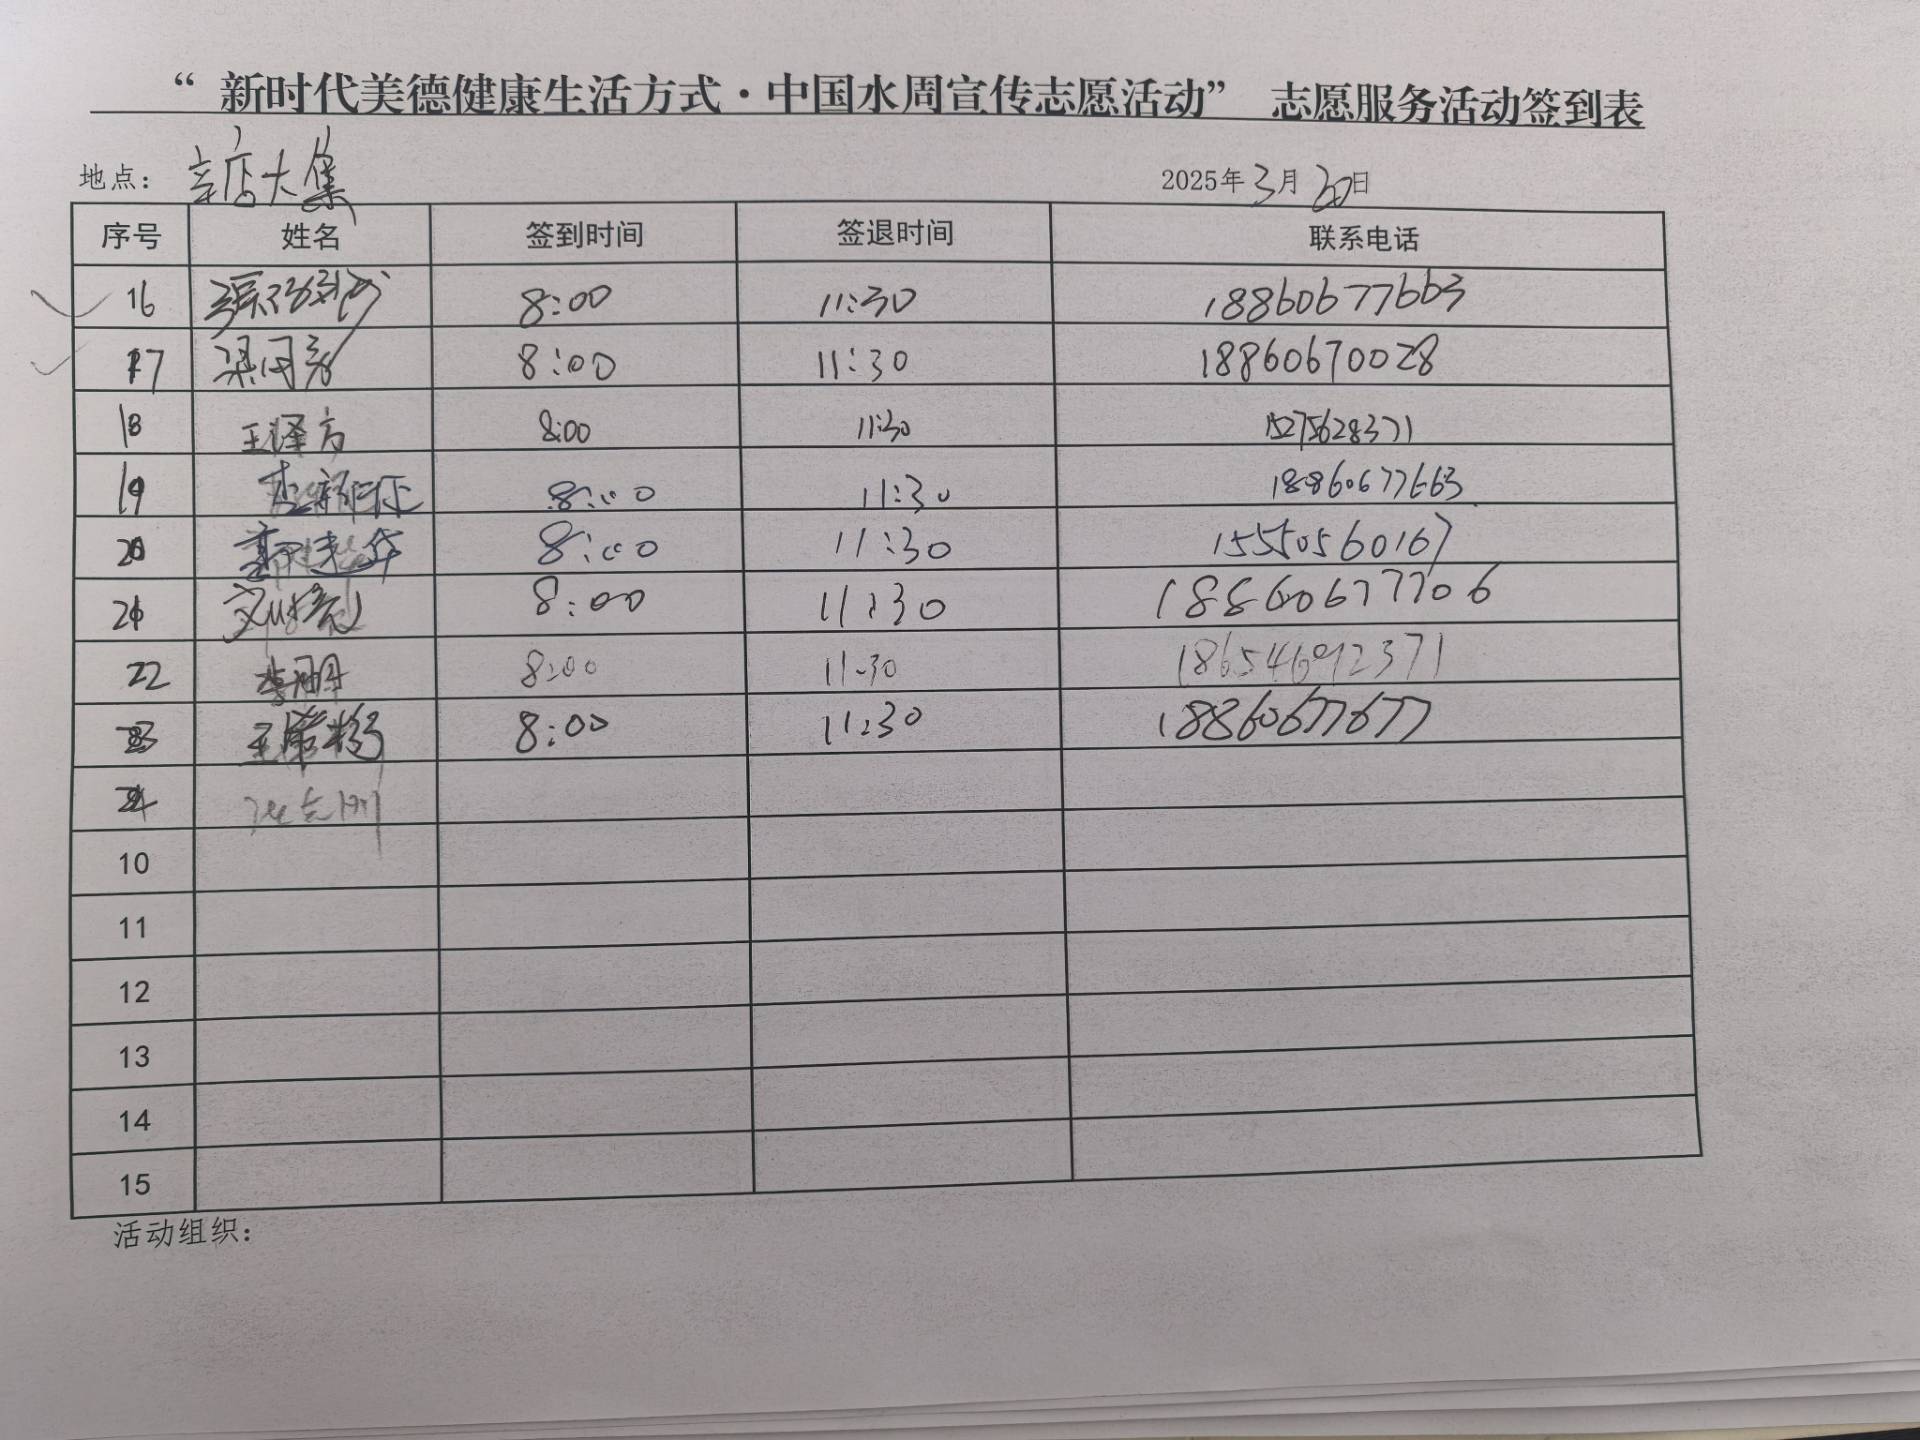 “新时代美德健康生活方式·中国水周宣传志愿活动” 志愿服务活动签到表
地点： 辛店大集 2025年3月20日
序号 姓名 签到时间 签退时间 联系电话
16 8:00 11:30 18860677663
17 8:00 11:30 18860670028
18 王泽方 8:00 11:30 15275628371
19 8:00 11:30 18860677663
20 8:00 11:30 15550560167
21 8:00 11:30 18860677706
22 李朋 8:00 11:30 18654692371
23 8:00 11:30 18860677677
24
10
11
12
13
14
15
活动组织：